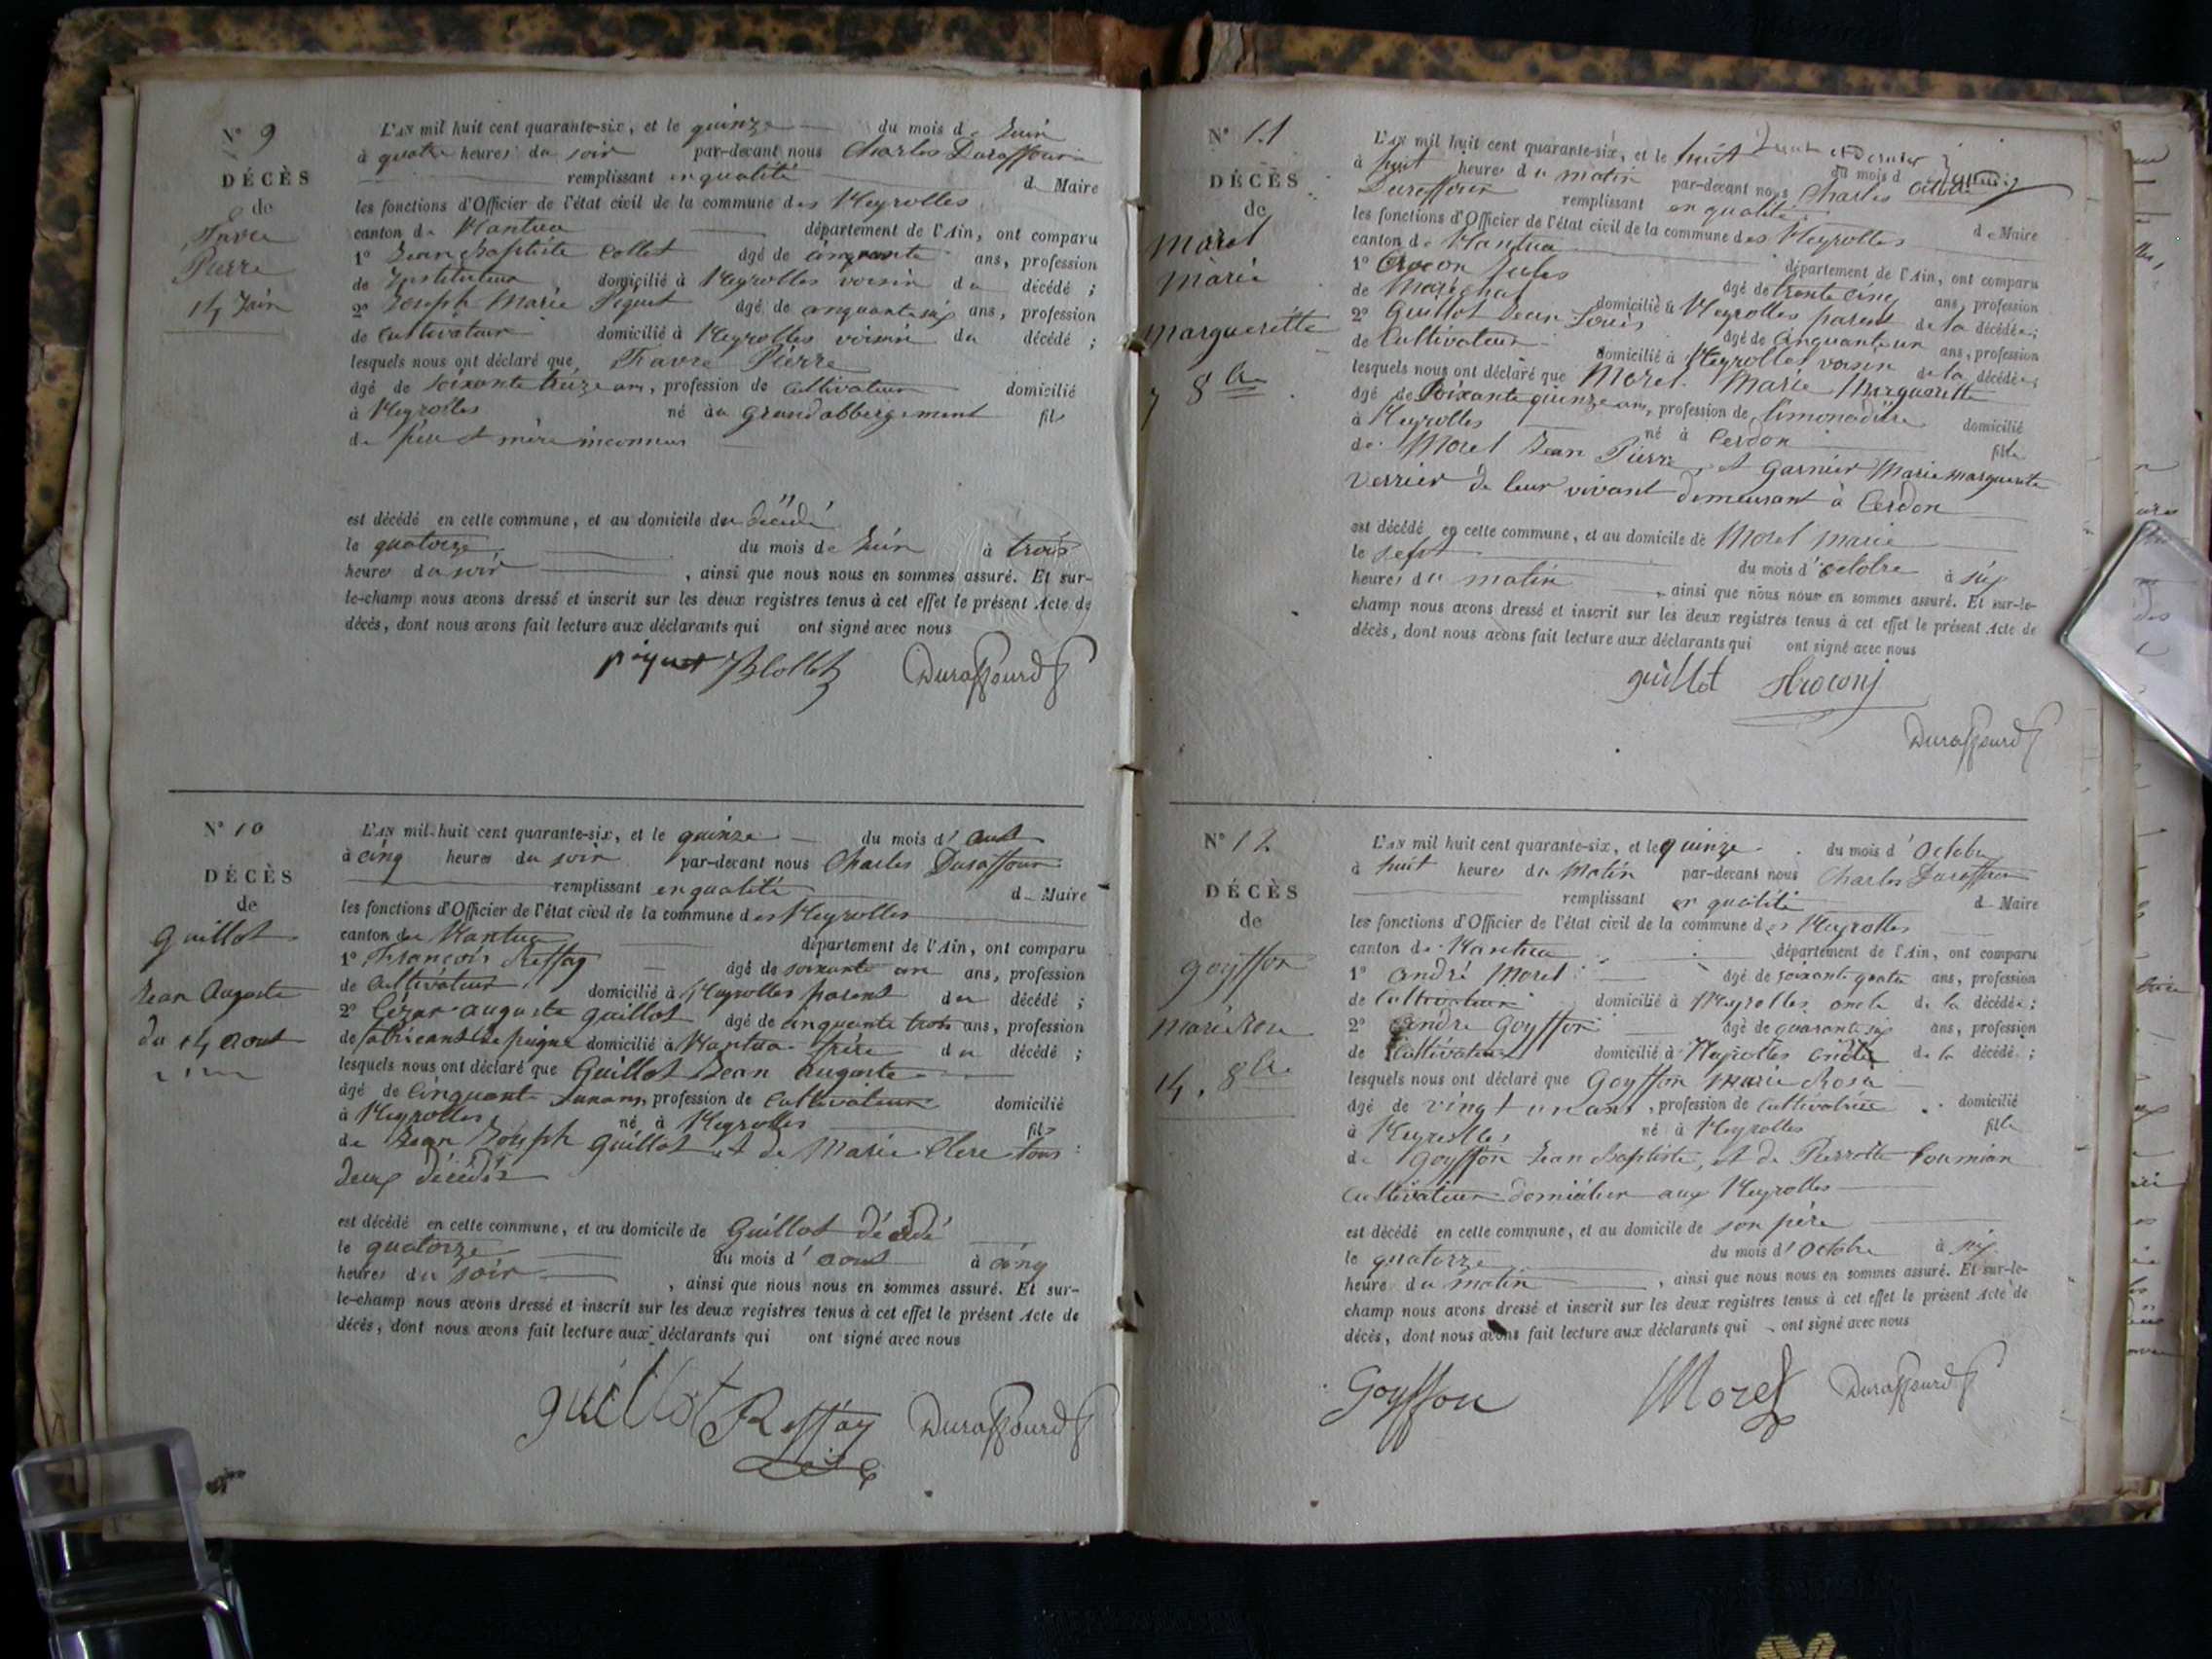 N° 9
DÉCÈS
de
Favre
Pierre
14 Juin
L'AN mil huit cent quarante-six, et le quinze du mois de Juin
à quatre heures du soir par-devant nous Charles Duraffour
remplissant en qualité de Maire
les fonctions d'Officier de l'état civil de la commune des Neyrolles
canton de Nantua département de l'Ain, ont comparu
1° Jean Baptiste Collet âgé de cinquante ans, profession
de Instituteur domicilié à Neyrolles voisin du décédé ;
2° Joseph Marie Piquet âgé de cinquante six ans, profession
de Cultivateur domicilié à Neyrolles voisin du décédé ;
lesquels nous ont déclaré que Favre Pierre
âgé de soixante treize ans, profession de Cultivateur domicilié
à Neyrolles né au Grand abbergement fils
de père et mère inconnus
est décédé en cette commune, et au domicile du décédé
le quatorze du mois de Juin à trois
heures du soir , ainsi que nous nous en sommes assuré. Et sur-
le-champ nous avons dressé et inscrit sur les deux registres tenus à cet effet le présent Acte de
décès, dont nous avons fait lecture aux déclarants qui ont signé avec nous
piquet JB Collet Duraffourd
N° 10
DÉCÈS
de
Guillot
Jean Auguste
du 14 aout
L'AN mil huit cent quarante-six, et le quinze du mois d'Aout
à cinq heures du soir par-devant nous Charles Duraffour
remplissant en qualité de Maire
les fonctions d'Officier de l'état civil de la commune des Neyrolles
canton de Nantua département de l'Ain, ont comparu
1° François Reffay âgé de soixante un ans, profession
de Cultivateur domicilié à Neyrolles parent du décédé ;
2° Cézar auguste Guillot âgé de cinquante trois ans, profession
de fabricant de peigne domicilié à Nantua frère du décédé ;
lesquels nous ont déclaré que Guillot Jean Auguste
âgé de Cinquante ans, profession de Cultivateur domicilié
à Neyrolles né à Neyrolles fils
de Jean Joseph Guillot et de Marie Clerc tous
deux décédés
est décédé en cette commune, et au domicile de Guillot décédé
le quatorze du mois d'aout à cinq
heures du soir , ainsi que nous nous en sommes assuré. Et sur-
le-champ nous avons dressé et inscrit sur les deux registres tenus à cet effet le présent Acte de
décès, dont nous avons fait lecture aux déclarants qui ont signé avec nous
guillot Reffay Duraffourd
N° 11
DÉCÈS
de
Morel
Marie
Margueritte
7 8bre
L'AN mil huit cent quarante-six, et le huit du mois d'Octobre
à huit heures du matin par-devant nous Charles
Duraffour remplissant en qualité de Maire
les fonctions d'Officier de l'état civil de la commune des Neyrolles
canton de Nantua département de l'Ain, ont comparu
1° Jules âgé de trente cinq ans, profession
de Maréchal domicilié à Neyrolles parent de la décédée ;
2° Guillot Jean Louis âgé de Cinquante un ans, profession
de Cultivateur domicilié à Neyrolles voisin de la décédée ;
lesquels nous ont déclaré que Morel Marie Margueritte
âgé de Soixante quinze ans, profession de limonadière domicilié
à Neyrolles né à Cerdon fille
de Morel Jean Pierre et Garnier Marie marguerite
Verrier de leur vivant demeurant à Cerdon
est décédé en cette commune, et au domicile de Morel Marie
le sept du mois d'octobre à six
heures du matin , ainsi que nous nous en sommes assuré. Et sur-le-
champ nous avons dressé et inscrit sur les deux registres tenus à cet effet le présent Acte de
décès, dont nous avons fait lecture aux déclarants qui ont signé avec nous
guillot
Duraffourd
N° 12
DÉCÈS
de
Goyffon
Marie Rose
14. 8bre
L'AN mil huit cent quarante-six, et le quinze du mois d'Octobre
à huit heures du Matin par-devant nous Charles Duraffour
remplissant en qualité de Maire
les fonctions d'Officier de l'état civil de la commune des Neyrolles
canton de Nantua département de l'Ain, ont comparu
1° André Morel âgé de soixante quatre ans, profession
de Cultivateur domicilié à Neyrolles oncle de la décédée ;
2° André Goyffon âgé de quarante six ans, profession
de Cultivateur domicilié à Neyrolles oncle de la décédé ;
lesquels nous ont déclaré que Goyffon Marie Rose
âgé de vingt un ans, profession de Cultivatrice domicilié
à Neyrolles né à Neyrolles fille
de Goyffon Jean Baptiste, et de Pierrette
Cultivateur domicilier aux Neyrolles
est décédé en cette commune, et au domicile de son père
le quatorze du mois d'Octobre à six
heure du matin , ainsi que nous nous en sommes assuré. Et sur-le-
champ nous avons dressé et inscrit sur les deux registres tenus à cet effet le présent Acte de
décès, dont nous avons fait lecture aux déclarants qui ont signé avec nous
Goyffon Morel Duraffourd